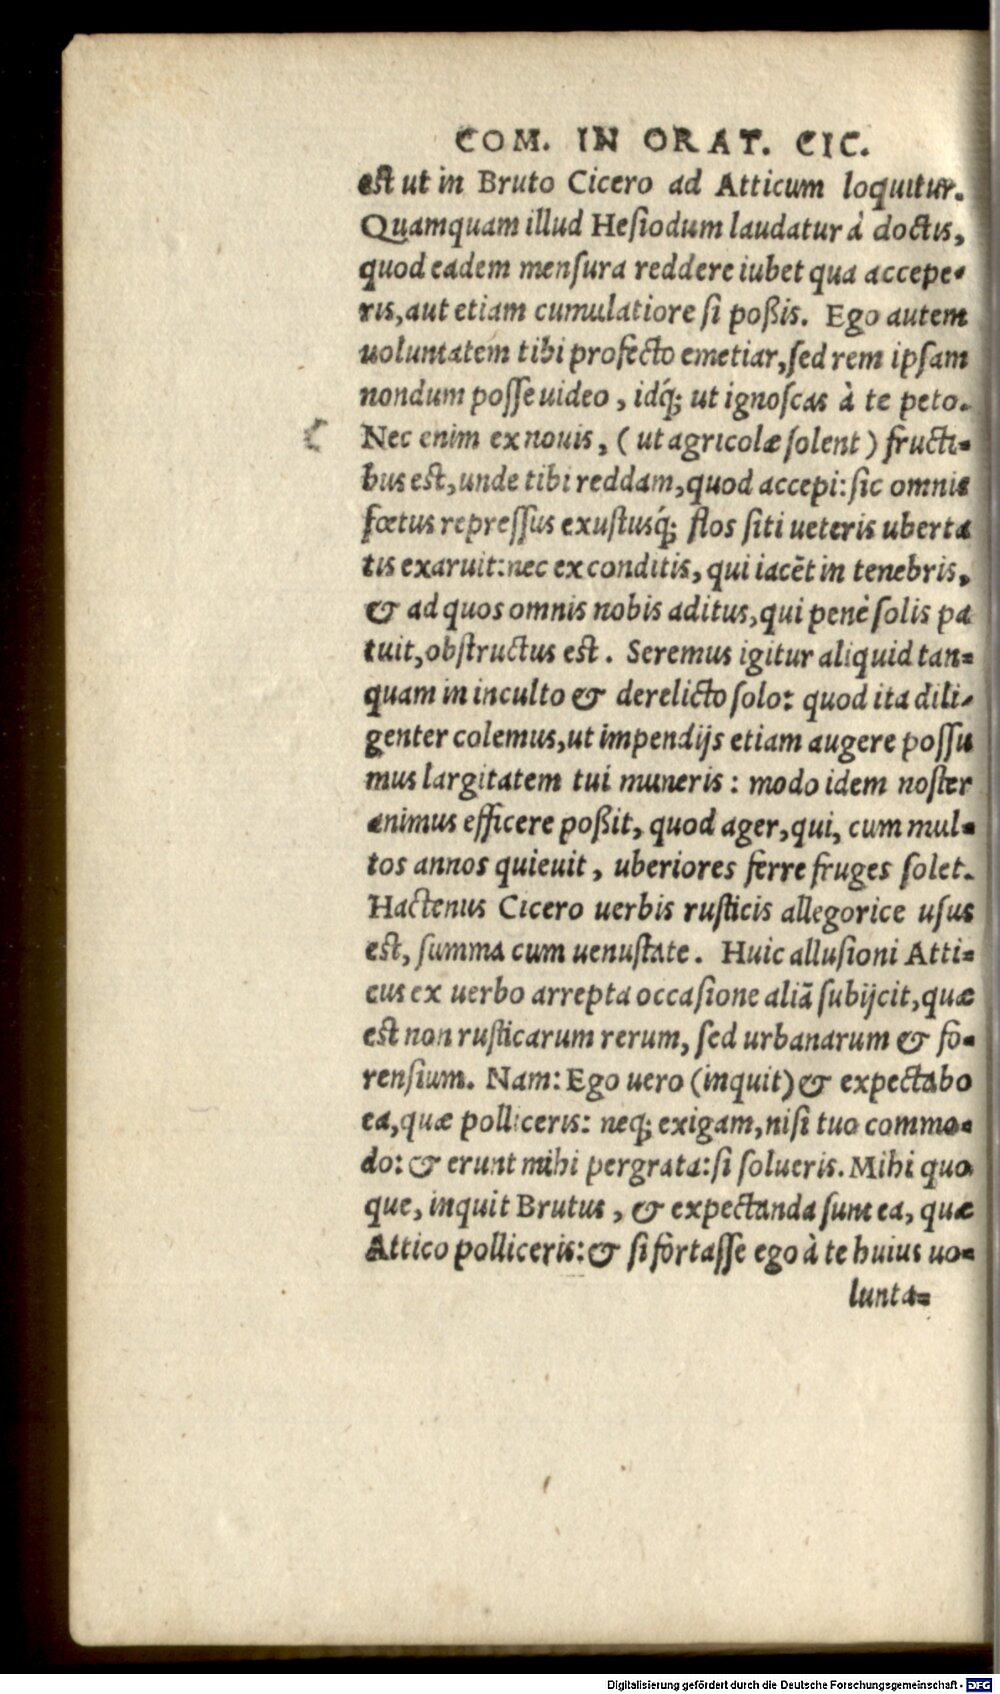 COM. IN ORAT. CIC.
est ut in Bruto Cicero ad Atticum loquitur.
Quamquam illud Hesiodum laudatur à doctis,
quod eadem mensura reddere iubet qua accepe-
ris, aut etiam cumulatiore si poßis. Ego autem
uoluntatem tibi profecto emetiar, sed rem ipsam
nondum posse uideo, idq́; ut ignoscas à te peto.
Nec enim ex nouis, (ut agricolæ solent) fructi-
bus est, unde tibi reddam, quod accepi: sic omnis
fœtus repressus exustusq́; flos siti ueteris uberta
tis exaruit: nec ex conditis, qui iacẽt in tenebris,
& ad quos omnis nobis aditus, qui penè solis pa
tuit, obstructus est. Seremus igitur aliquid tan-
quam in inculto & derelicto solo: quod ita dili-
genter colemus, ut impendijs etiam augere possu
mus largitatem tui muneris: modo idem noster
animus efficere poßit, quod ager, qui, cum mul-
tos annos quieuit, uberiores ferre fruges solet.
Hactenus Cicero uerbis rusticis allegorice usus
est, summa cum uenustate. Huic allusioni Atti-
cus ex uerbo arrepta occasione aliã subijcit, quæ
est non rusticarum rerum, sed urbanarum & fo-
rensium. Nam: Ego uero (inquit) & expectabo
ea, quæ polliceris: neq; exigam, nisi tuo commo-
do: & erunt mihi pergrata: si solueris. Mihi quo
que, inquit Brutus, & expectanda sunt ea, quæ
Attico polliceris: & si fortasse ego à te huius uo-
lunta-
Digitalisierung gefördert durch die Deutsche Forschungsgemeinschaft - DFG